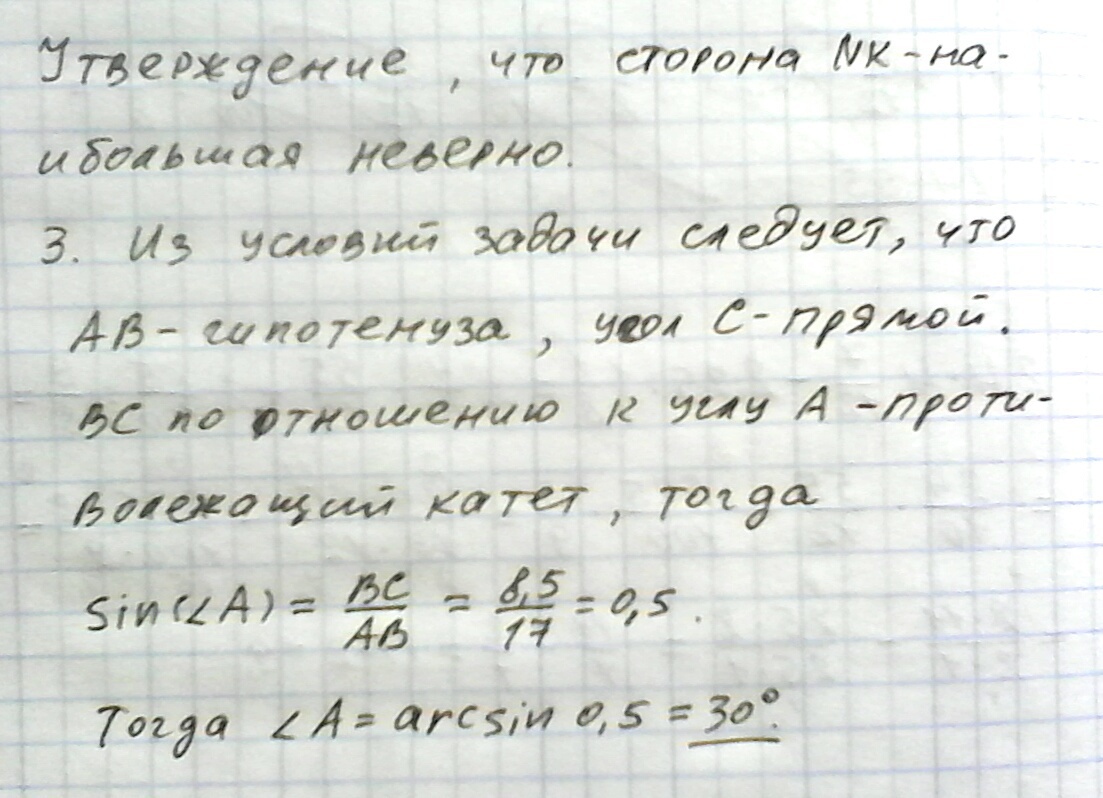 Утверждение, что сторона NK-на-
ибольшая неверно.
3. Из условий задачи следует, что
AB-гипотенуза, угол C-прямой.
BC по отношению к углу A-проти-
волежащий катет, тогда
Sin(∠A) = BC/AB = 8,5/17 = 0,5.
Тогда ∠A = arcsin 0,5 = 30°.